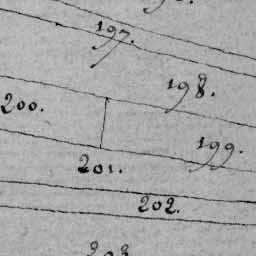 197.
198.
200.
199.
201.
202.
203